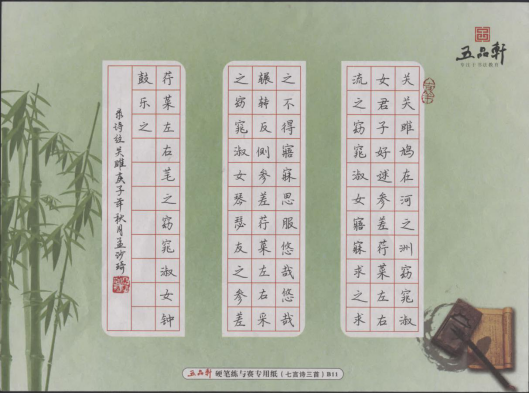 五品軒
专注于书法教育
关关雎鸠在河之洲窈窕淑
女君子好逑参差荇菜左右
流之窈窕淑女寤寐求之求
之不得寤寐思服悠哉悠哉
辗转反侧参差荇菜左右采
之窈窕淑女琴瑟友之参差
荇菜左右芼之窈窕淑女钟
鼓乐之
录诗经关雎庚子年秋月孟沙琦
五品軒 硬笔练与赛专用纸（七言诗三首）B11